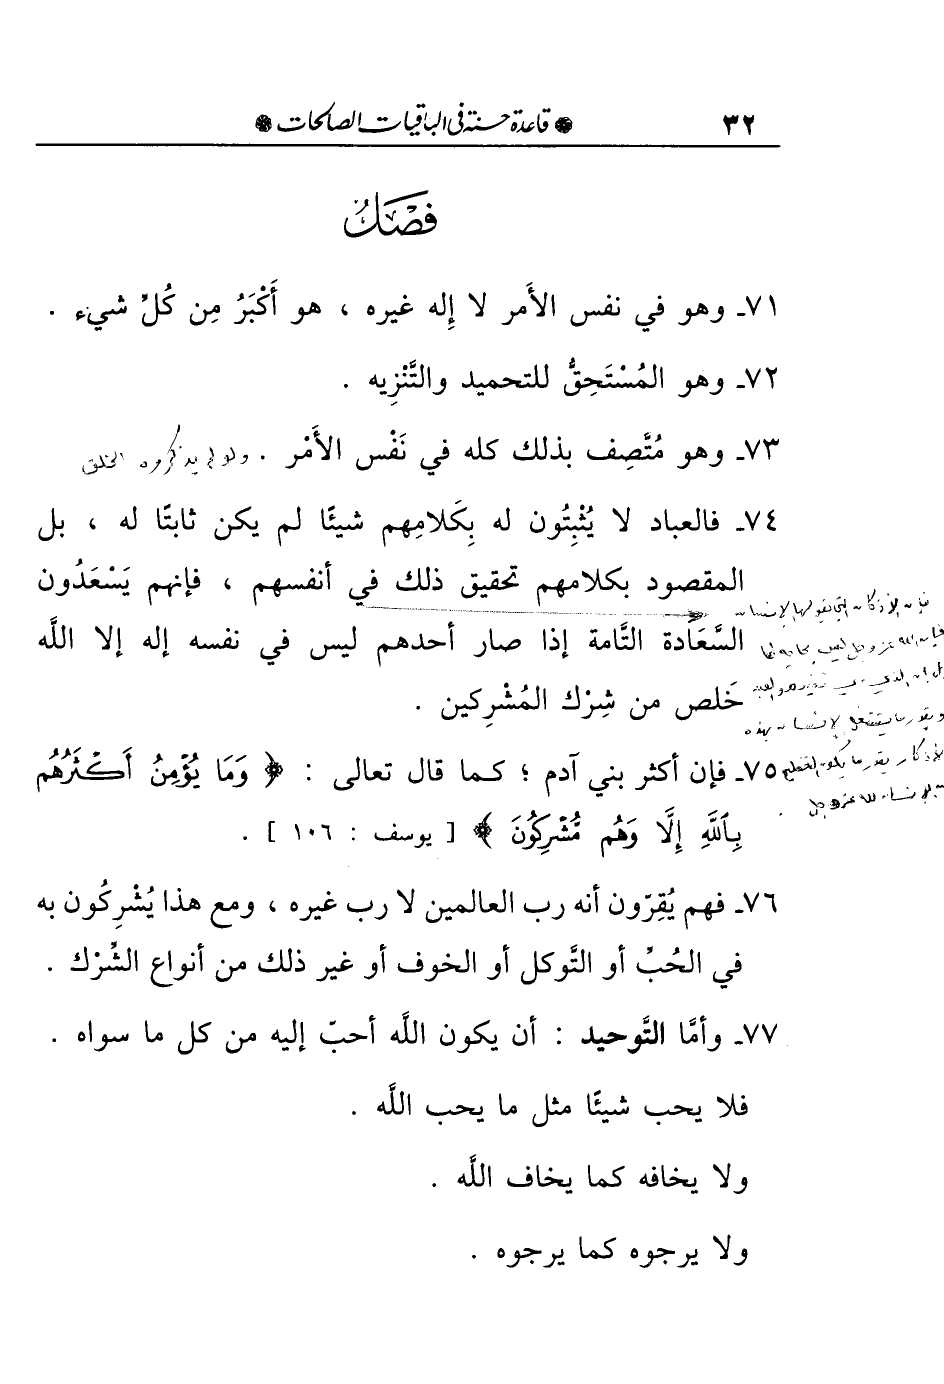 ٣٢
❁ قاعدة حسنة في الباقيات الصالحات ❁
فَصْلٌ
٧١ـ وهو في نفس الأَمر لا إِله غيره ، هو أَكْبَرُ مِن كُلِّ شيء .
٧٢ـ وهو المُسْتَحِقُّ للتحميد والتَّنْزِيه .
٧٣ـ وهو مُتَّصِف بذلك كله في نَفْس الأَمْر .
ولو لم يذكروه الخلق
٧٤ـ فالعباد لا يُثْبِتُون له بِكَلامِهم شيئًا لم يكن ثابتًا له ، بل
المقصود بكلامهم تحقيق ذلك في أنفسهم ، فإنهم يَسْعَدُون
السَّعَادة التَّامة إذا صار أحدهم ليس في نفسه إله إلا اللَّه
خَلص من شِرْك المُشْرِكين .
فإن الأذكار التي يقولها الإنسان
فإن الله عز وجل ليس بحاجة لها
بل إن الذي
العبد
وبقدر ما يشتغل الإنسان بهذه
الأذكار بقدر ما يكون
الإنسان لله عز وجل .
٧٥ـ فإن أكثر بني آدم ؛ كـما قال تعالى : ﴿ وَمَا يُؤْمِنُ أَكْثَرُهُم
بِٱللَّهِ إِلَّا وَهُم مُّشْرِكُونَ ﴾ [ يوسف : ١٠٦ ] .
٧٦ـ فهم يُقِرّون أنه رب العالمين لا رب غيره ، ومع هذا يُشْرِكُون به
في الحُبِّ أو التَّوكل أو الخوف أو غير ذلك من أنواع الشِّرْك .
٧٧ـ وأمَّا التَّوحيد : أن يكون اللَّه أحبّ إليه من كل ما سواه .
فلا يحب شيئًا مثل ما يحب اللَّه .
ولا يخافه كما يخاف اللَّه .
ولا يرجوه كما يرجوه .